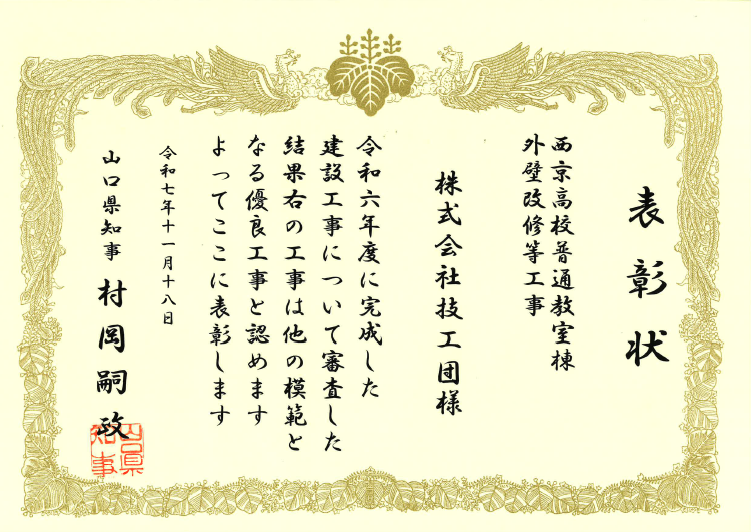 表彰状
西京高校普通教室棟
外壁改修等工事
株式会社技工団様
令和六年度に完成した
建設工事について審査した
結果右の工事は他の模範と
なる優良工事と認めます
よってここに表彰します
令和七年十一月十八日
山口県知事 村岡嗣政
山口県知事